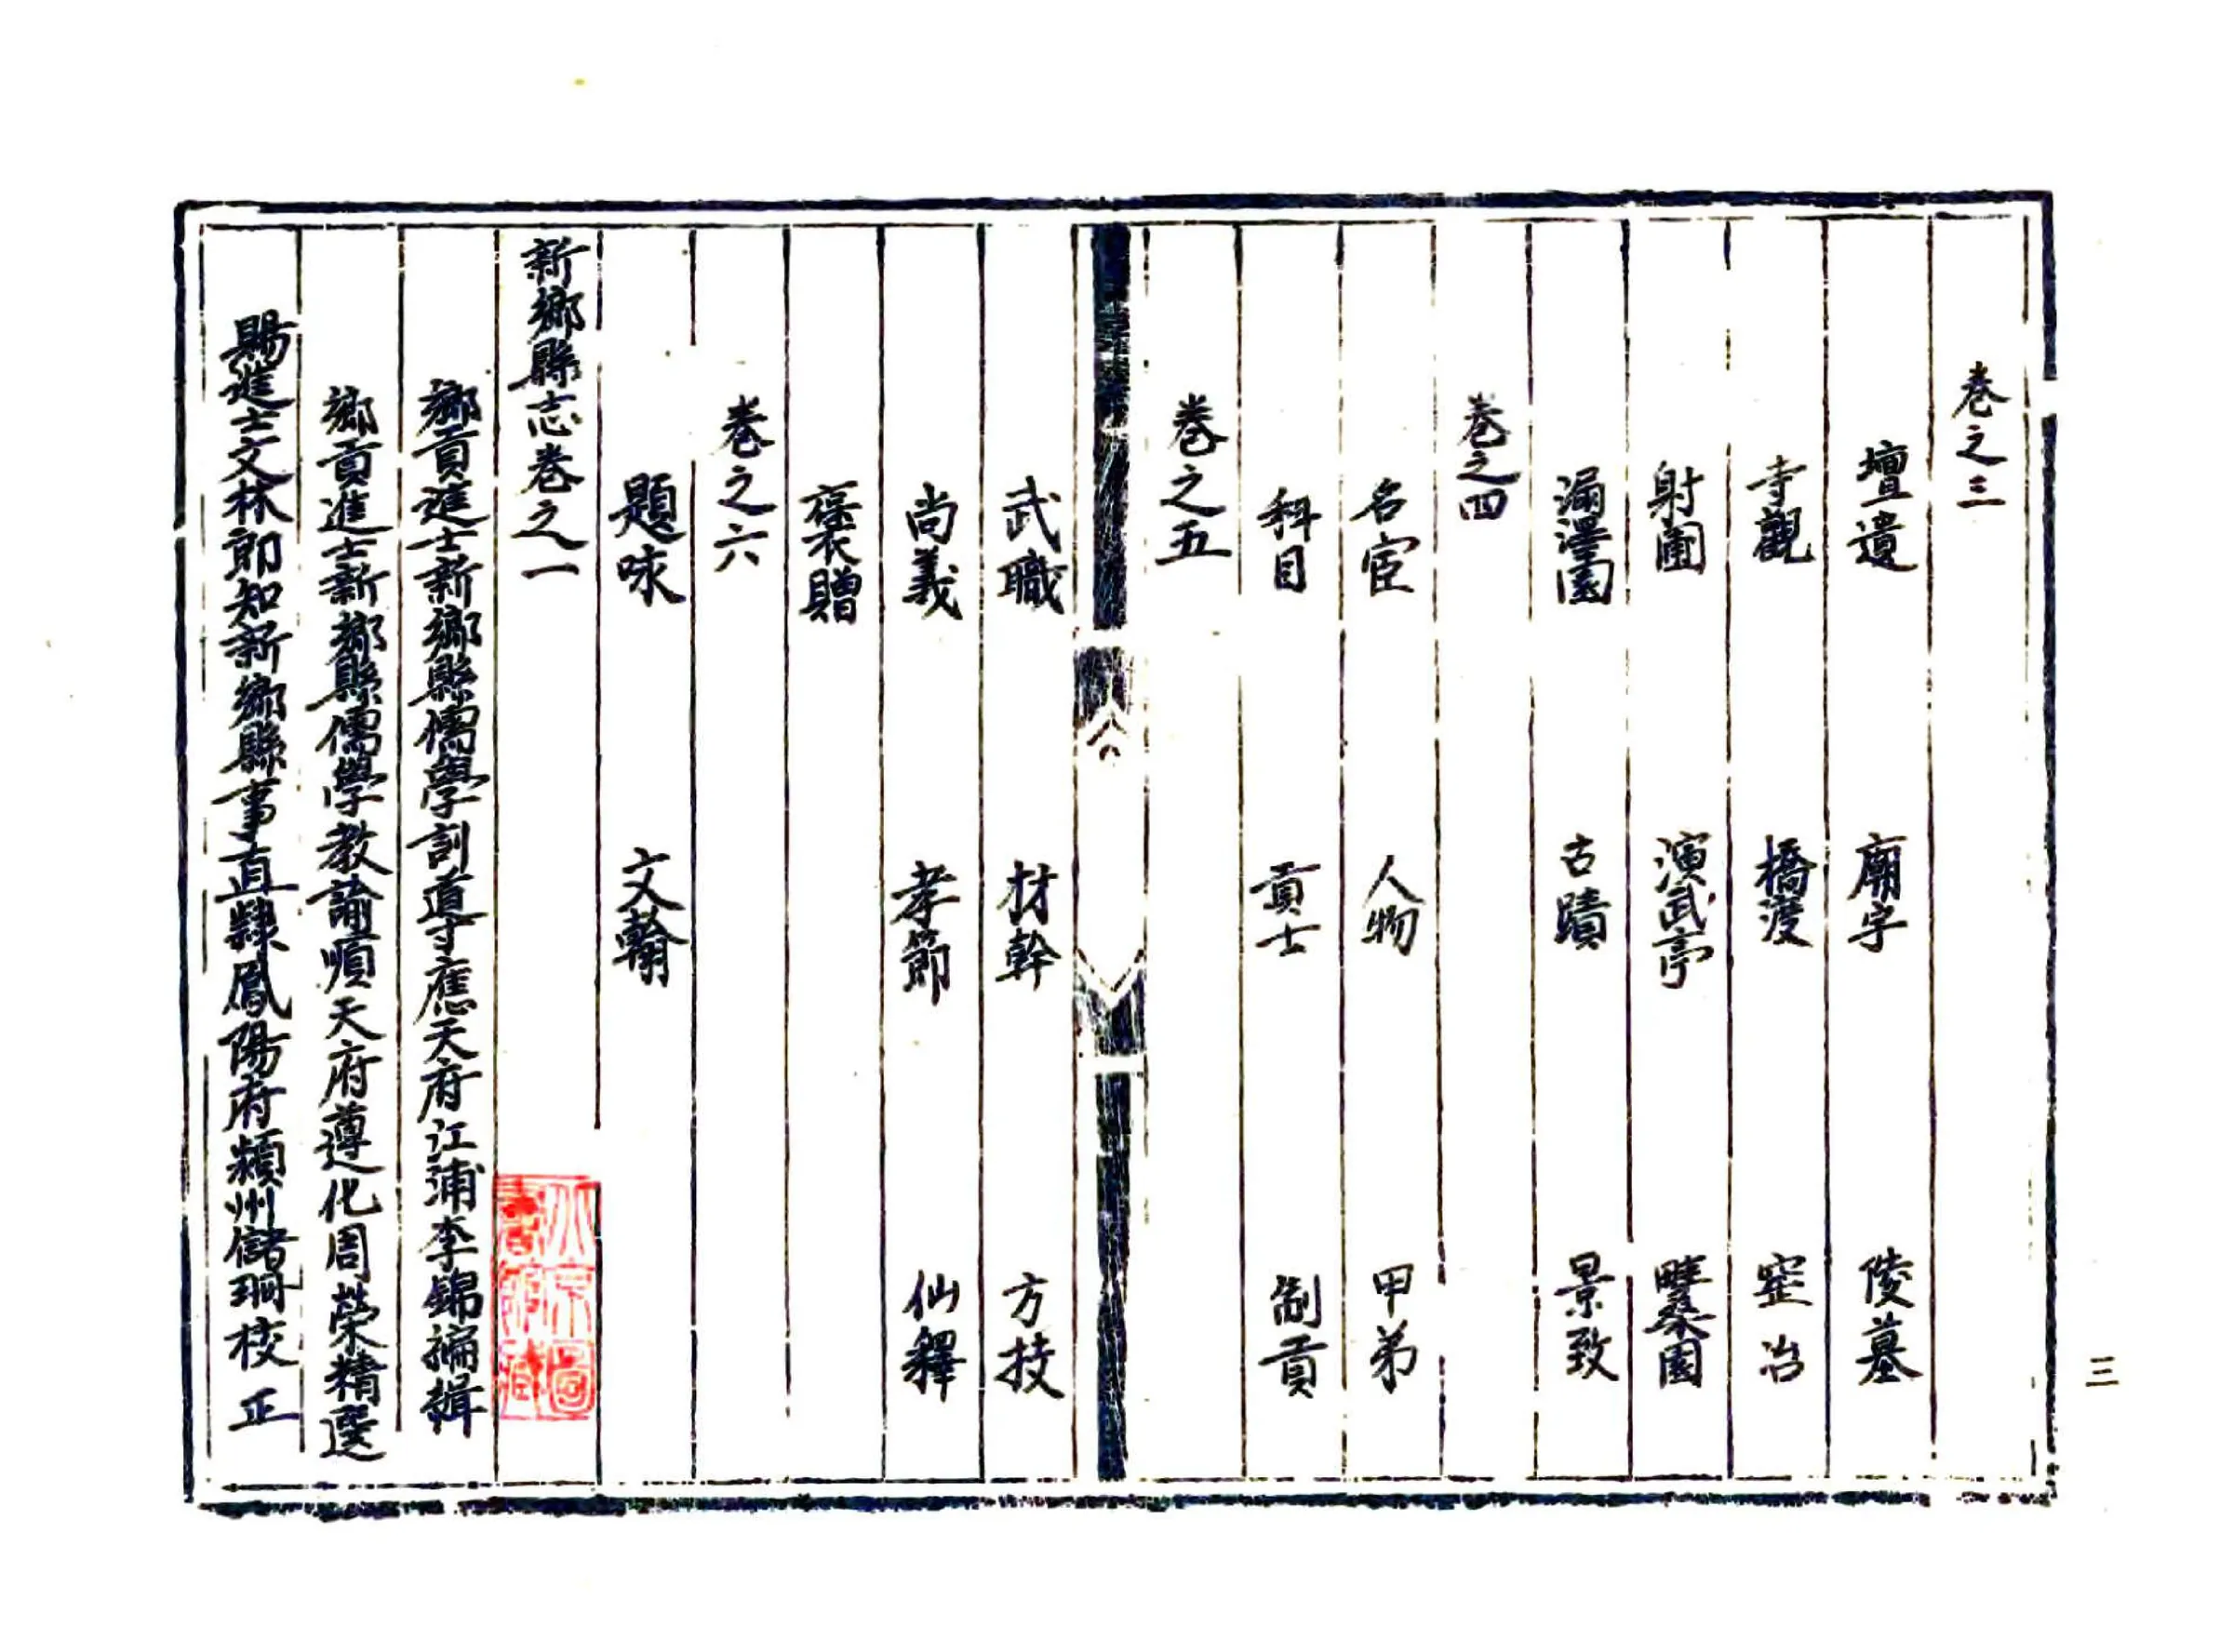 三
卷之三
壇遺 廟宇 陵墓
寺觀 橋渡 冶
射圃 演武亭 畦桑園
漏澤園 古蹟 景致
卷之四
名宦 人物 甲弟
科目 貢士 制貢
卷之五
武職 材幹 方技
尚義 孝節 仙釋
褒贈
卷之六
題咏 文翰
新鄉縣志卷之一
北京圖書館藏
鄉貢進士新鄉縣儒學訓導應天府江浦李錦編輯
鄉貢進士新鄉縣儒學教諭順天府遵化周榮精選
賜進士文林郎知新鄉縣事直隸鳳陽府潁州儲珊校正